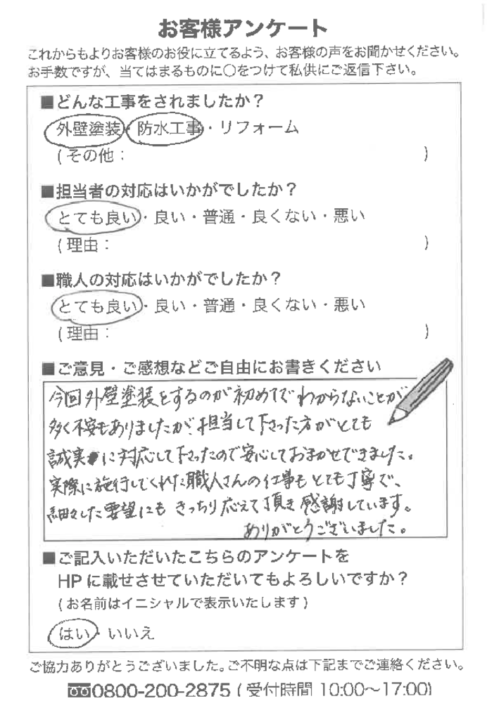 お客様アンケート
これからもよりお客様のお役に立てるよう、お客様の声をお聞かせください。
お手数ですが、当てはまるものに○をつけて私供にご返信下さい。
■どんな工事をされましたか？
外壁塗装・防水工事・リフォーム
(その他： )
■担当者の対応はいかがでしたか？
とても良い・良い・普通・良くない・悪い
(理由： )
■職人の対応はいかがでしたか？
とても良い・良い・普通・良くない・悪い
(理由： )
■ご意見・ご感想などご自由にお書きください
今回外壁塗装をするのが初めてでわからないことが
多く不安もありましたが、担当して下さった方がとても
誠実に対応して下さったので安心しておまかせできました。
実際に施行してくれた職人さんの仕事もとても丁寧で、
細々した要望にもきっちり応えて頂き感謝しています。
ありがとうございました。
■ご記入いただいたこちらのアンケートを
HPに載せさせていただいてもよろしいですか？
(お名前はイニシャルで表示いたします)
はい・いいえ
ご協力ありがとうございました。ご不明な点は下記までご連絡ください。
0800-200-2875 (受付時間 10:00〜17:00)